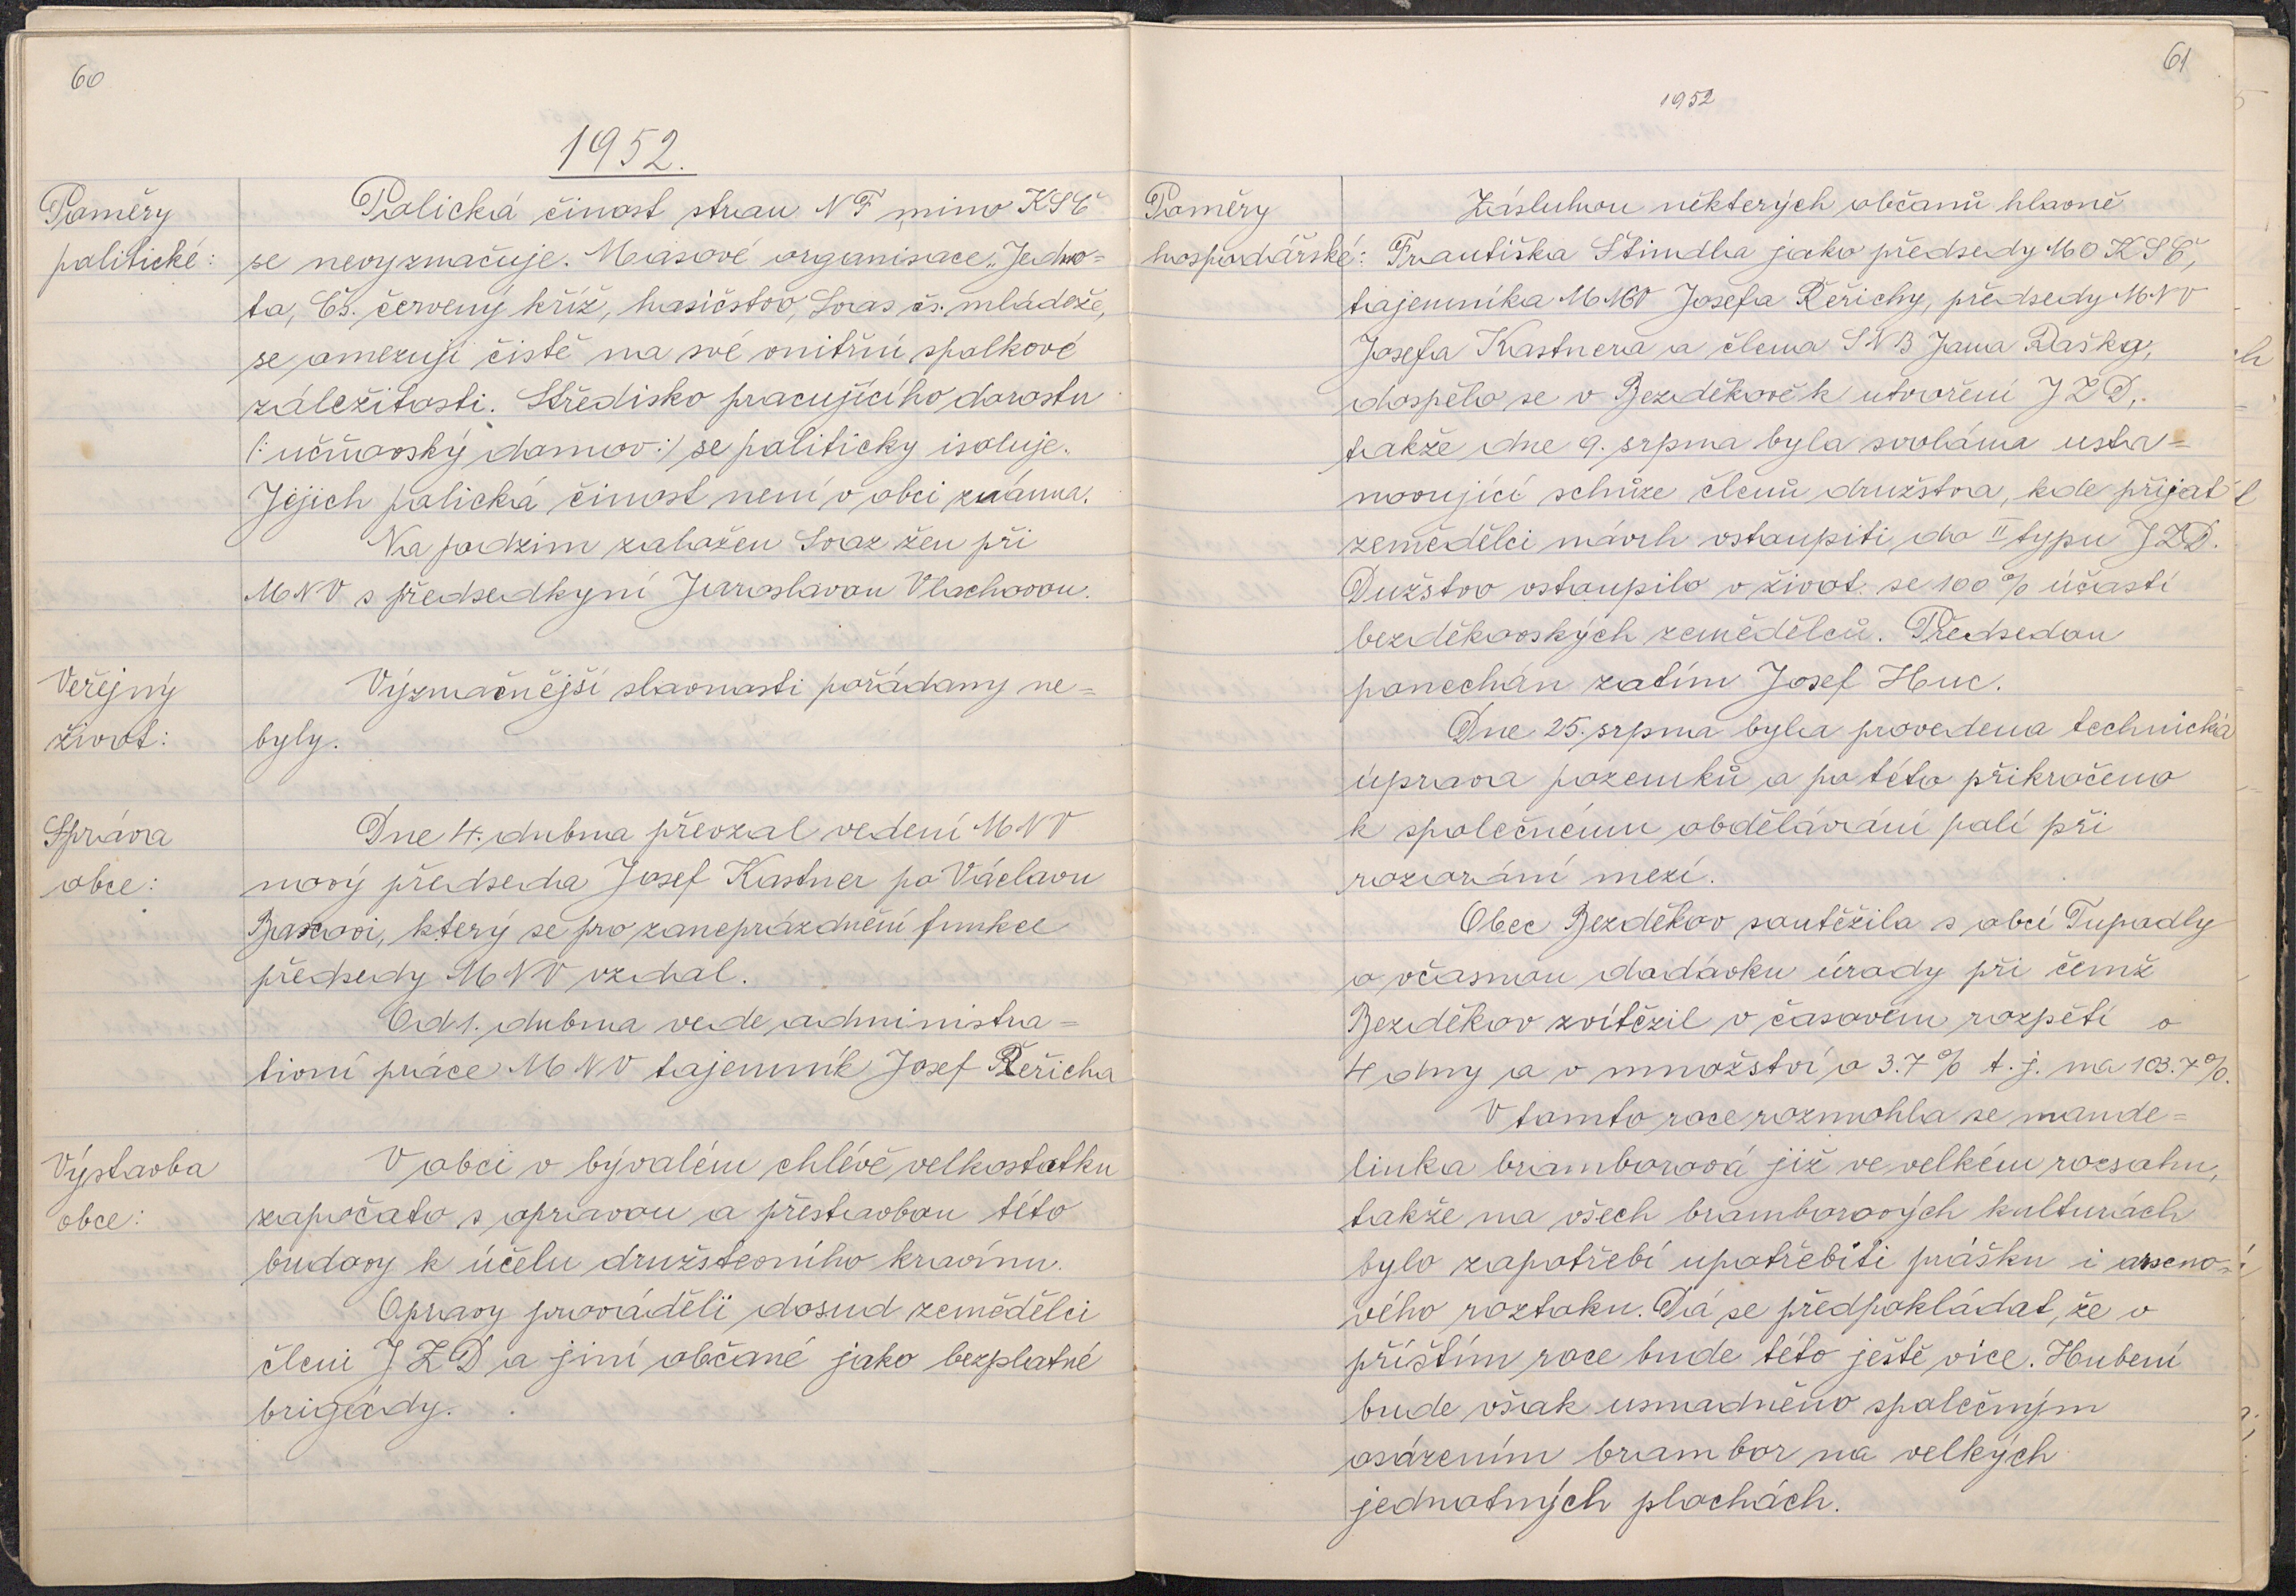 60
1952.
Poměry
politické:
Polická činost stran NF mimo KSČ
se nevyznačuje. Masové organisace „Jedno=
ta, Čs. červený kříž, hasičstvo, Svas čs. mládeže,
se omezují čistě na své vnitřní spolkové
záležitosti. Středisko pracujícího dorostu
/: učňovský domov :/ se politicky isoluje.
Jejich polická činost není v obci známa.
Na podzim založen Svaz žen při
MNV s předsedkyní Jaroslavou Vlachovou.
Veřejný
život:
Význačnější slavnosti pořádany ne=
byly.
Správa
obce:
Dne 4. dubna převzal vedení MNV
nový předseda Josef Kastner po Václavu
který se pro zaneprázdnění funkce
předsedy MNV vzdal.
Od 1. dubna vede administra=
tivní práce MNV tajemník Josef Řeřicha
Výstavba
obce:
V obci v bývalém chlévě velkostatku
započato s opravou a přestavbou této
budovy k účelu družstevního kravínu.
Opravy prováděli dosud zemědělci
členi JZD a jiní občané jako bezplatné
brigády.
61
1952
Poměry
hospodářské:
Zásluhou některých občanů hlavně
Františka Štindla jako předsedy MO KSČ,
tajemníka MNV Josefa Řeřichy, předsedy MNV
Josefa Kastnera a člena SNB Jana Daška,
dospělo se v Bezděkově k utvoření JZD,
takže dne 9. srpna byla svolána usta=
novující schůze členů družstva, kde přijat
zemědělci návrh vstoupiti do II typu JZD.
Dužstvo vstoupilo v život se 100% účastí
bezděkovských zemědělců. Předsedou
ponechán zatím Josef Huc.
Dne 25. srpna byla provedena technická
úprava pozemků a po této přikročeno
k společnému obdělávání polí při
rozorání mezí.
Obec Bezděkov soutěžila s obcí Tupadly
o včasnou dodávku úrody při čemž
Bezděkov zvítězil v časovém rozpětí o
4 dny a v množství o 3.7% t. j. na 103.7%.
V tomto roce rozmohla se mande=
linka bramborová již ve velkém rozsahu,
takže na všech bramborových kulturách
bylo zapotřebí upotřebiti prášku i arseno=
vého roztoku. Dá se předpokládat, že v
příštím roce bude této ještě více. Hubení
bude však usnadněno společným
osázením brambor na velkých
jednotných plochách.